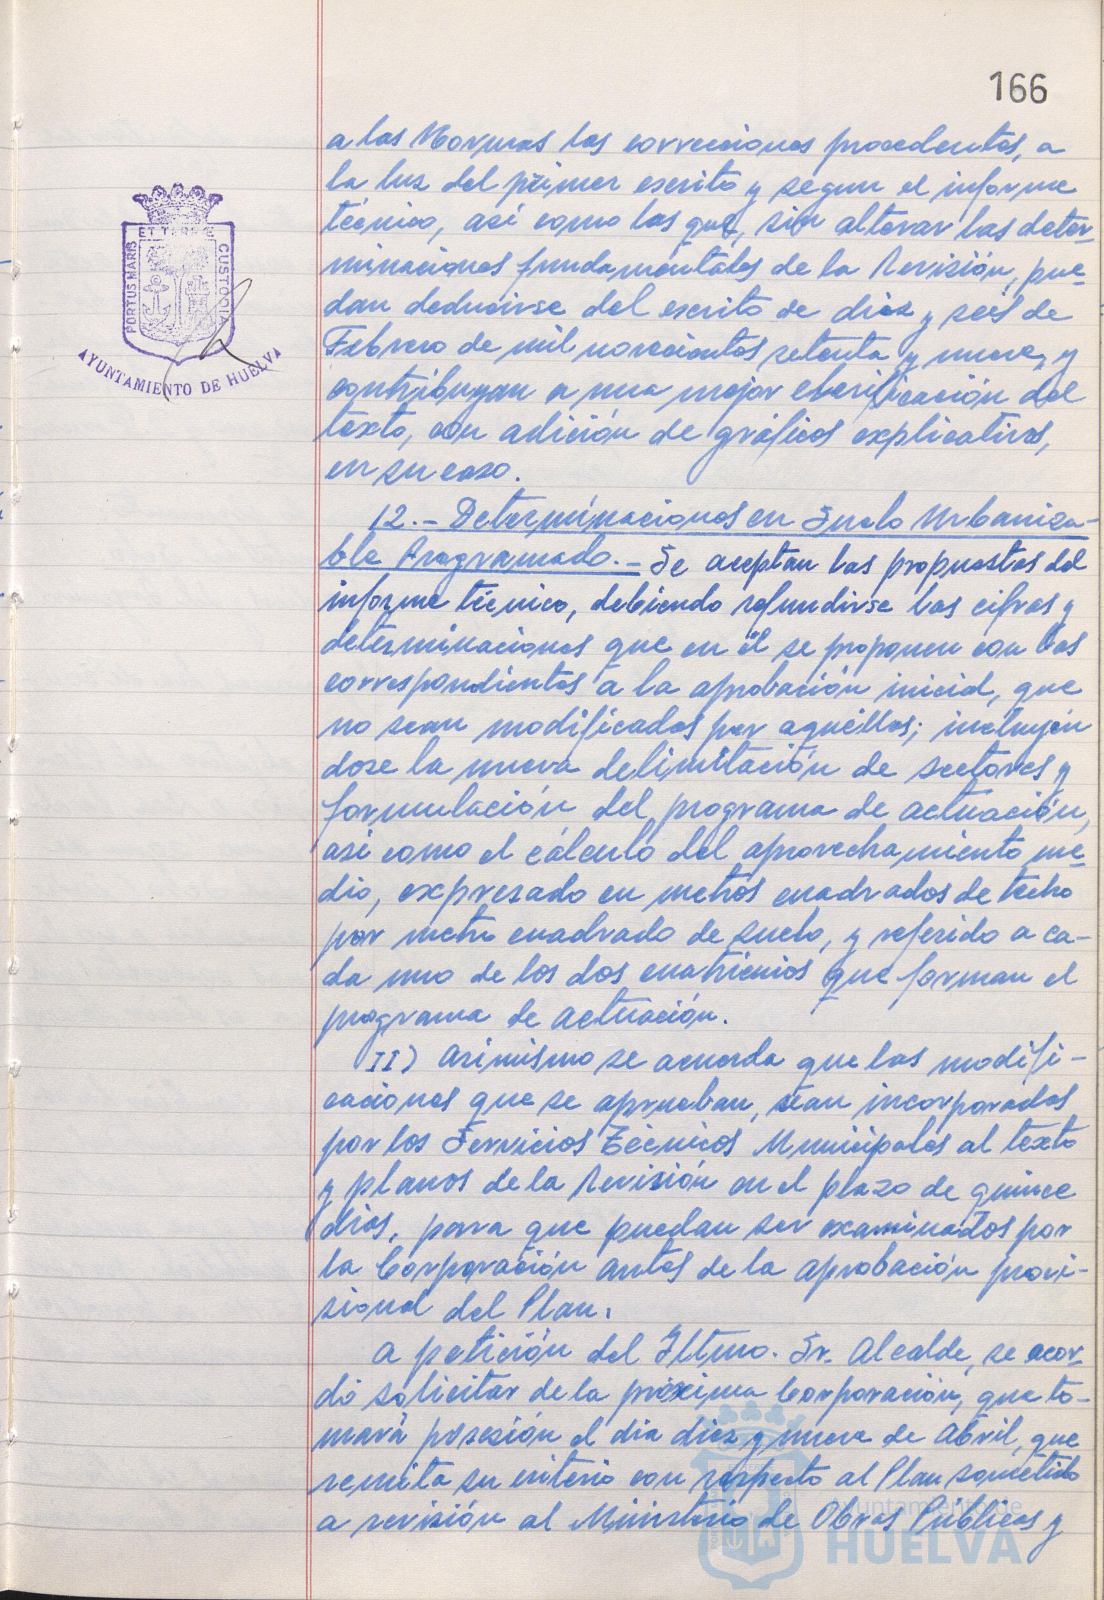 166
a las Normas las correcciones procedentes, a
la luz del primer escrito y segun el informe
técnico, así como las que, sin alterar las deter-
minaciones fundamentales de la Revisión, pue-
dan deducirse del escrito de diez y seis de
Febrero de mil novecientos setenta y nueve, y
contribuyan a una mejor clarificación del
texto, con adición de gráficos explicativos,
en su caso.
12.- Determinaciones en Suelo Urbaniza-
ble Programado.- Se aceptan las propuestas del
informe técnico, debiendo refundirse las cifras y
determinaciones que en él se proponen con las
correspondientes a la aprobación inicial, que
no sean modificadas por aquéllas; incluyén
dose la nueva delimitación de sectores y
formulación del programa de actuación,
así como el cálculo del aprovechamiento me-
dio, expresado en metros cuadrados de techo
por metro cuadrado de suelo, y referido a ca-
da uno de los dos cuatrienios que forman el
programa de actuación.
II) Asimismo se acuerda que las modifi-
caciones que se aprueban, sean incorporadas
por los Servicios Técnicos Municipales al texto
y planos de la Revisión en el plazo de quince
días, para que puedan ser examinados por
la Corporación antes de la aprobación provi-
sional del Plan.
A petición del Iltmo. Sr. Alcalde, se acor-
dó solicitar de la próxima Corporación, que to-
mará posesión el dia diez y nueve de Abril, que
remita su criterio con respecto al Plan sometido
a revisión al Ministerio de Obras Públicas y
PORTUS MARIS ET TERRAE CUSTODIA
AYUNTAMIENTO DE HUELVA
Ayuntamiento de
HUELVA